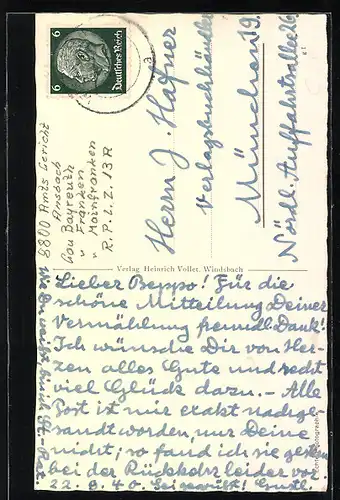 6
6
Deutsches Reich
Herrn J. Hafner
Verlagsbuchhändler
München 19.
Nördl. Auffahrtsallee
8800 Amts Gericht
Ansbach
Gau Bayreuth
" Franken
" Mainfranken
R.P.L.Z. 13 R
Verlag Heinrich Voller, Windsbach
Lieber Beppo! Für die
schöne Mitteilung Deiner
Vermählung freundl. Dank!
Ich wünsche Dir von Her-
zen alles Gute und recht
viel Glück dazu. - Alle
Post ist mir exakt nachge-
sandt worden, nur Deine
nicht; so fand ich sie gestern
bei der Rückkehr leider vor.
22. 8. 40.